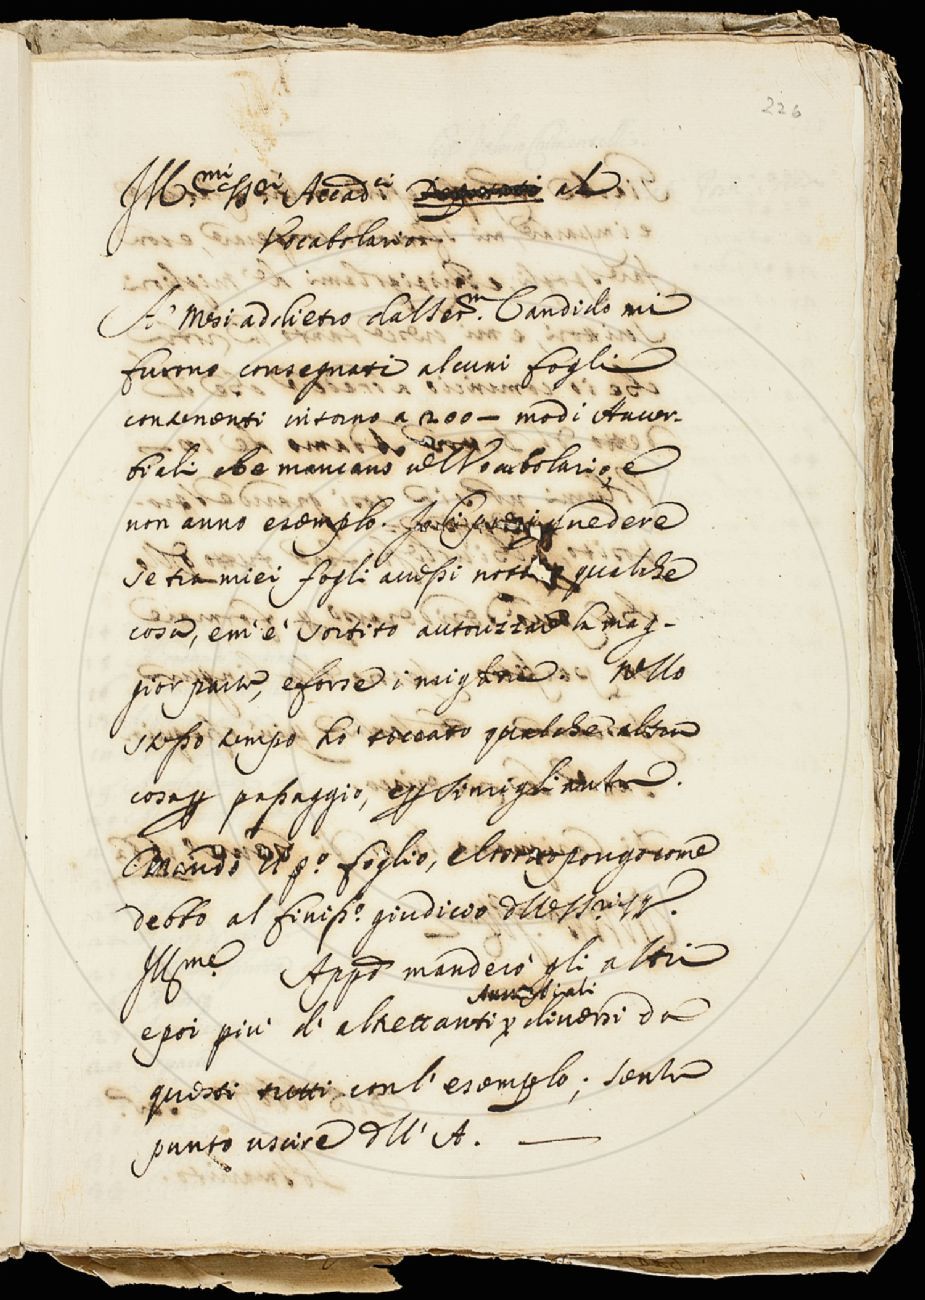 226
Ill.mi SS.ri Accad.ci Deputati al
Vocabolario.
A' Mesi addietro dall Ser.m Candido mi
furono consegnati alcuni fogli
contenenti intorno a 200 – modi Auuer-
biali che mancano nel Vocabolario, e
non anno esempio. Io li presi p uedere
se tra miei fogli auessi notata qualche
cosa, e m'è sortito autorizzare la mag-
gior parte, e forse i migliori. Nello
stesso tempo hò toccato qualche altra
cosa p passaggio, e p simigliante.
Mando il p.o foglio, e lo pongo come
debbo al finiss.o giudicio dlle SS.rie VV.
Ill.me Appo manderò gli altri
e poi più d'altrettanti Auuerbiali diuersi da
questi tutti con l'esempio; senza
punto uscire dll' A. —